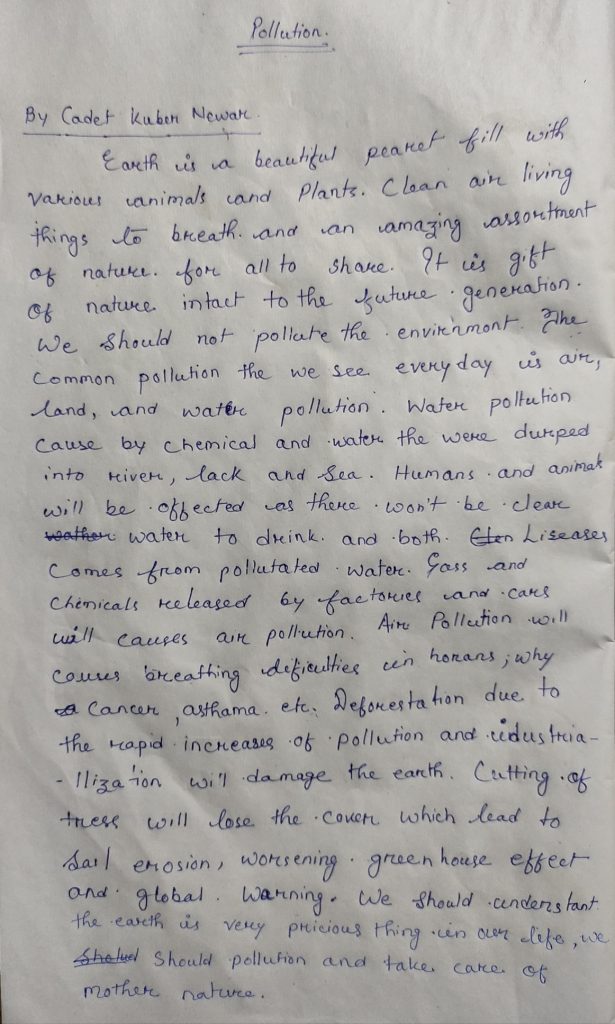 Pollution.
By Cadet Kuber Newar.
Earth is a beautiful peanet fill with
various animals and Plants. Clean air living
things to breath. and an amazing assortment
of nature. for all to share. It is gift
of nature intact to the future generation.
We should not pollute the envirnmont. The
Common pollution the we see everyday is air,
land, and water pollution. Water pollution
Cause by chemical and water the were dumped
into river, lack and sea. Humans and animals
will be offected as there won't be clear
water to drink. and both. Liseases
Comes from pollutated water. Gass and
Chemicals released by factories and cars
will causes air pollution. Air Pollution will
causes breathing deficulties in homans, why
Cancer, asthama. etc. Deforestation due to
the rapid increases of pollution and idustria-
-llization will damage the earth. Cutting of
tress will lose the cover which lead to
Sail erosion, worsening green house effect
and global. Warning. We should understant
the earth is very pricious thing in our life, we
should pollution and take care of
mother nature.